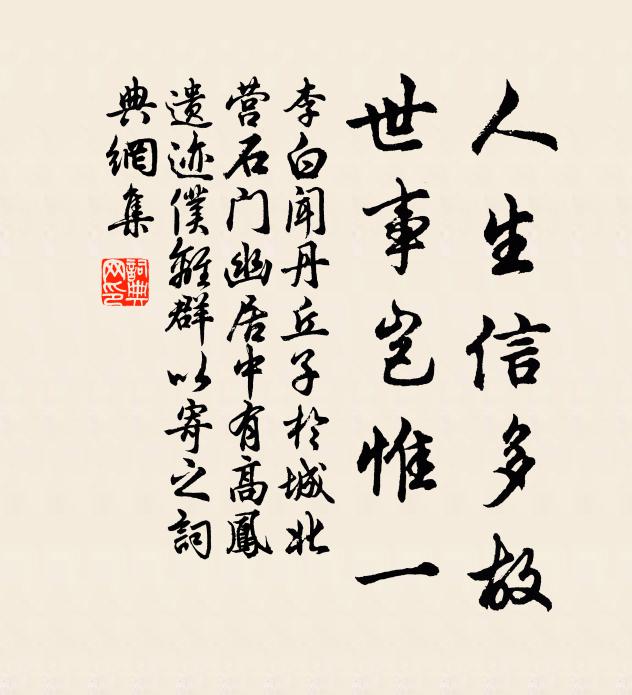 人生信多故
世事岂惟一
李白闻丹丘子于城北
营石门幽居中有高凤
遗迹仆离群以寄之词
典网集
词典网印